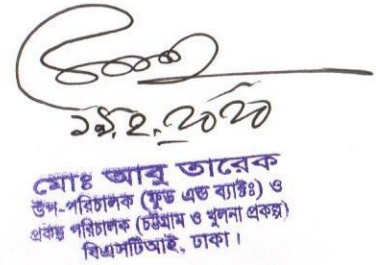 ২.২০২০
মোঃ আবু তারেক
উপ-পরিচালক (ফুড এন্ড ব্যাক্টঃ) ও
প্রকল্প পরিচালক (চট্টগ্রাম ও খুলনা প্রকল্প)
বিএসটিআই, ঢাকা।